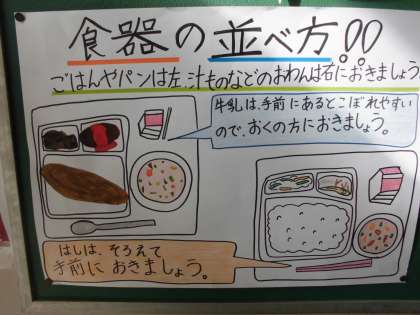 食器の並べ方!!
ごはんやパンは左、汁ものなどのおわんは右におきましょう
牛乳は、手前にあるとこぼれやすい
ので、おくの方におきましょう。
はしは、そろえて
手前に おきましょう。